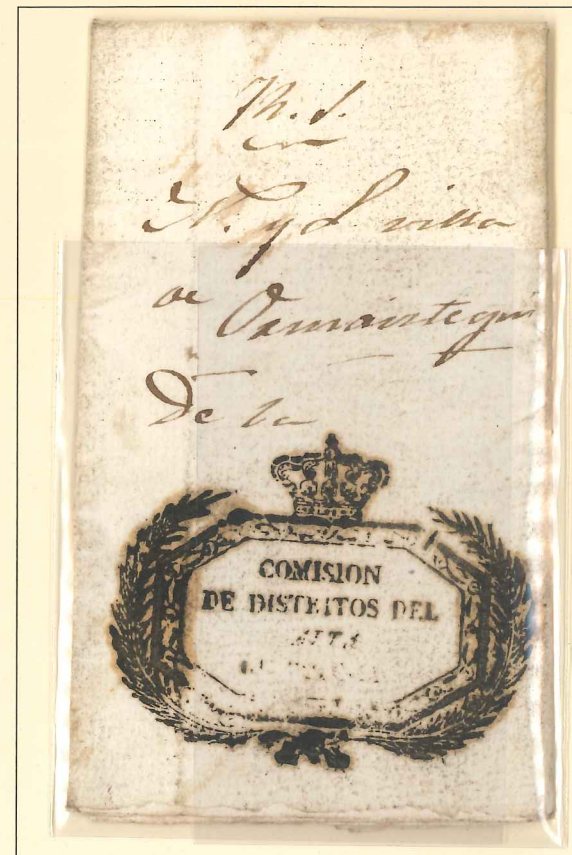 R. S.
N. y L. villa
de Ormaiztegui
De la
COMISION
DE DISTRITOS DEL
ALTA